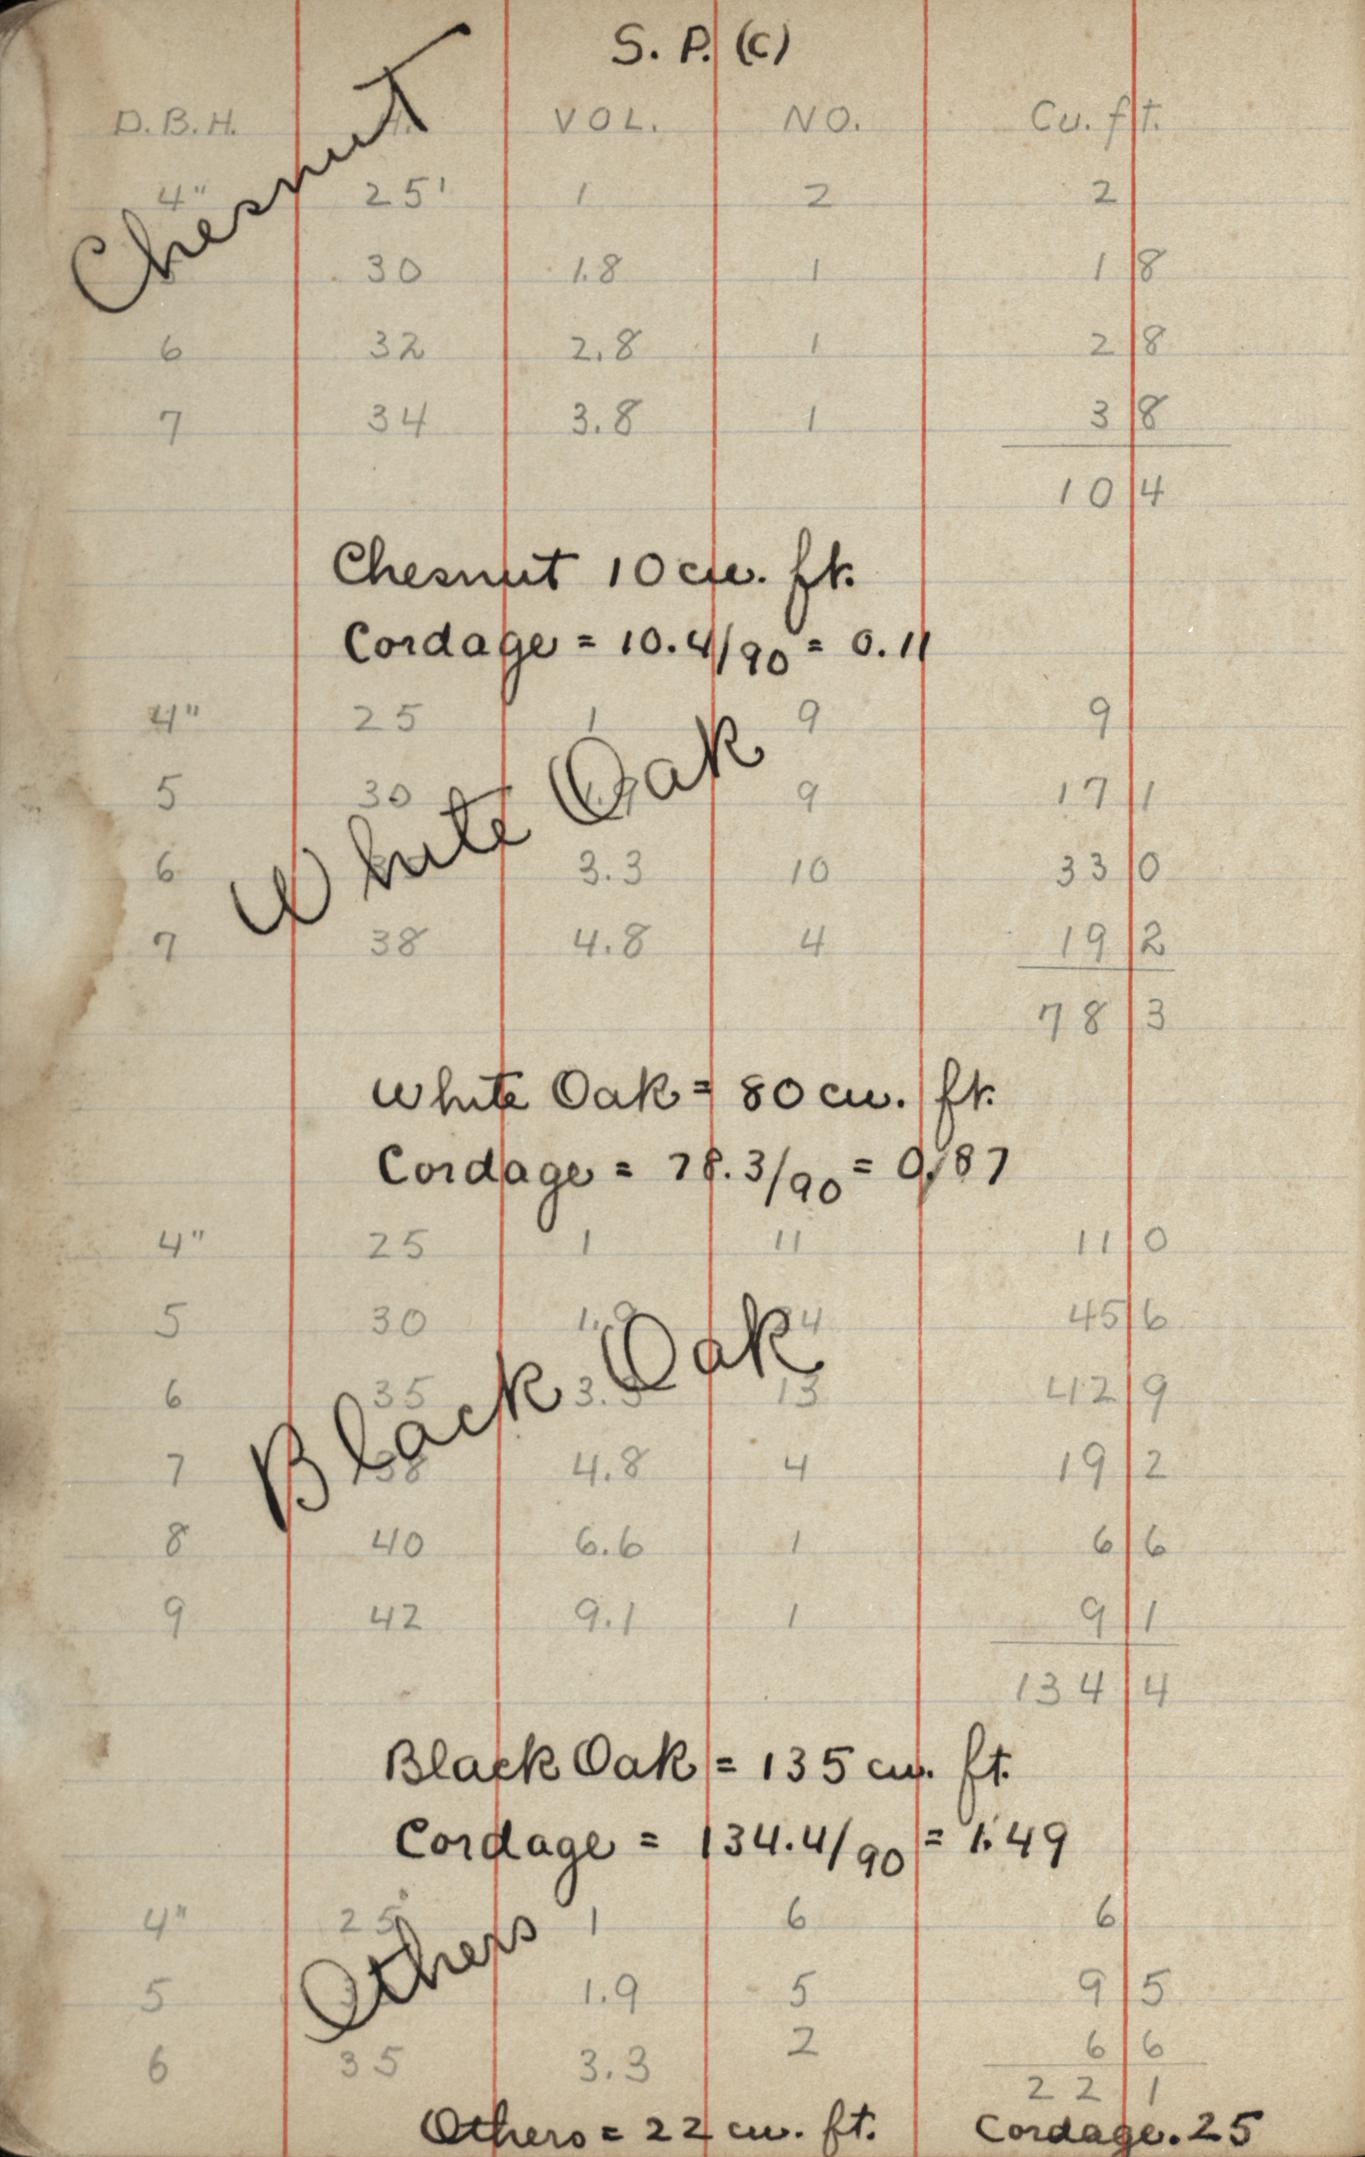 S. P. (c)
D.B.H. VOL. NO. Cu. ft.
Chesnut
4" 25' 1 2 2
30 1.8 1 1 8
6 32 2.8 1 2 8
7 34 3.8 1 3 8
10 4
Chesnut 10 cu. ft.
Cordage = 10.4/90 = 0.11
4" 25 1 9 9
White Oak
5 30 9 17 1
6 3.3 10 33 0
7 38 4.8 4 19 2
78 3
White Oak = 80 cu. ft.
Cordage = 78.3/90 = 0.87
4" 25 1 11 11 0
Black Oak
5 30 1.9 24 45 6
6 35 3.3 13 42 9
7 38 4.8 4 19 2
8 40 6.6 1 6 6
9 42 9.1 1 9 1
134 4
Black Oak = 135 cu. ft.
Cordage = 134.4/90 = 1.49
4" 25 1 6 6
Others
5 1.9 5 9 5
6 35 3.3 2 6 6
22 1
Others = 22 cu. ft. Cordage .25